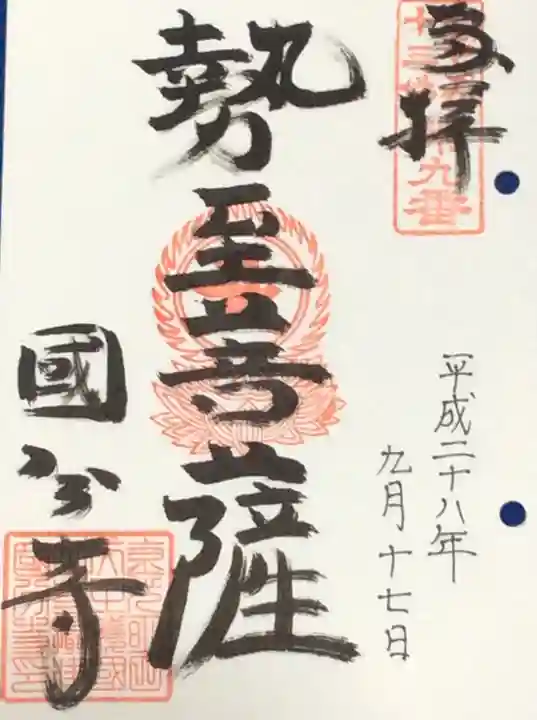 奉拝
十三 第九番
平成二十八年
九月十七日
勢至菩薩
國分寺